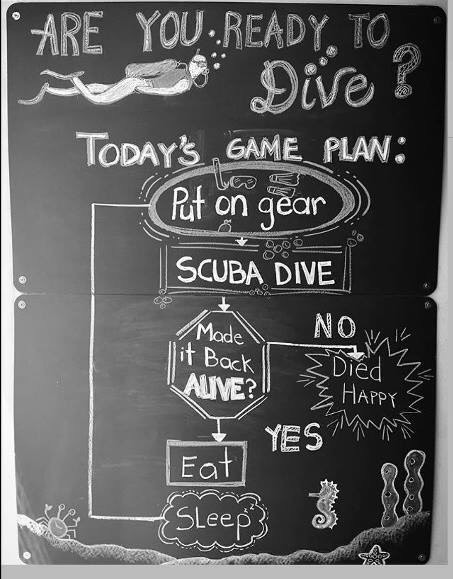 ARE YOU READY TO
Dive?
TODAY'S GAME PLAN:
Put on gear
SCUBA DIVE
Made
it Back
ALIVE?
NO
Died
HAPPY
YES
Eat
SLeep